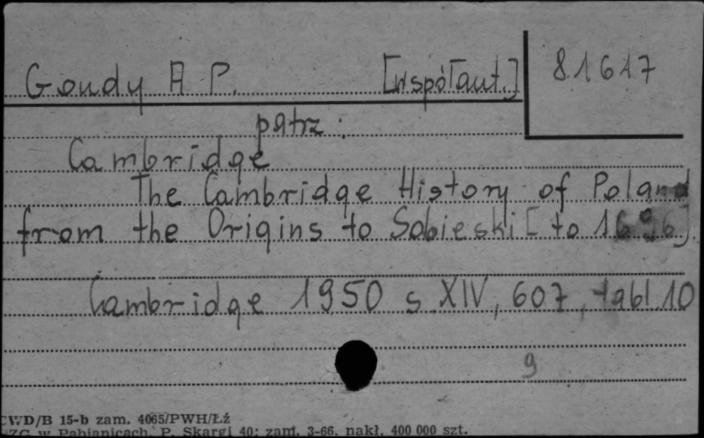 Goudy A P. [współaut.] 81617
patrz:
Cambridge
The Cambridge History of Poland
from the Origins to Sobieski [to 1696].
Cambridge 1950 s. XIV, 607, tabl. 10
9
CWD/B 15-b zam. 4065/PWH/Łź
ZG w Pabianicach, P. Skargi 40; zam. 3-66. nakł. 400 000 szt.